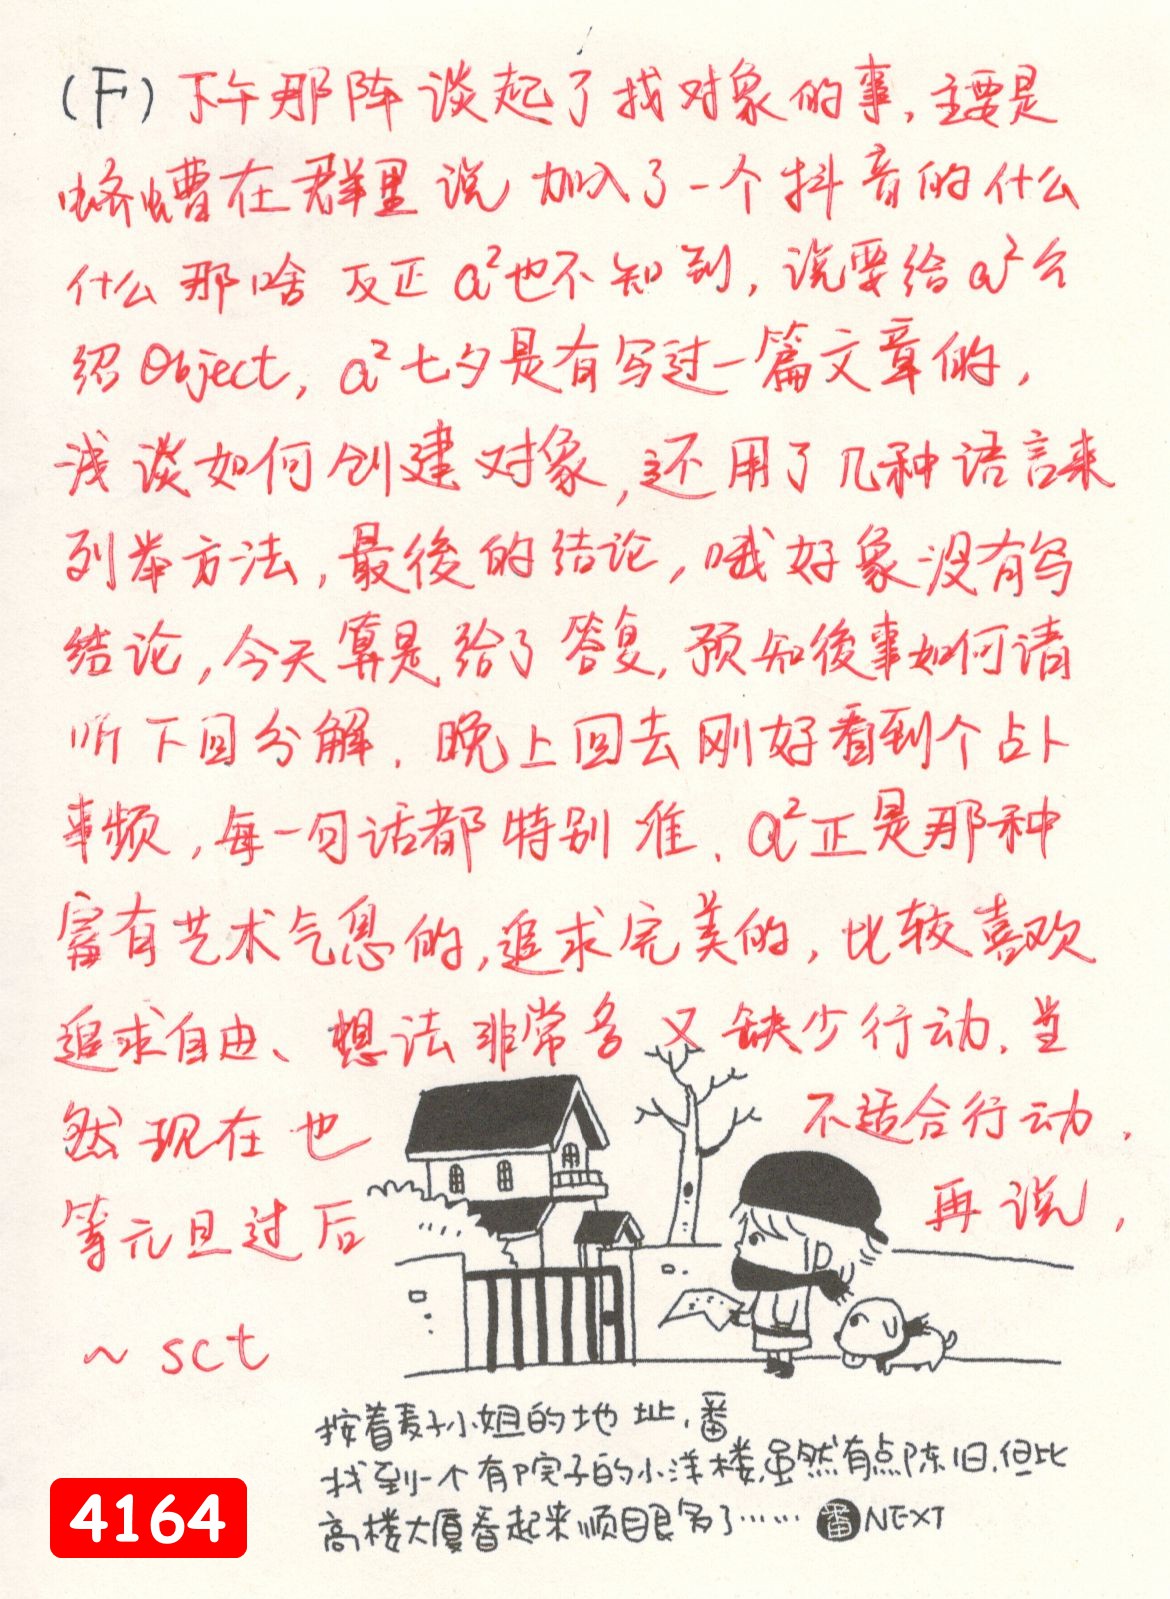 (F) 下午那阵谈起了找对象的事,主要是
蛴螬在群里说加入了一个抖音的什么
什么那啥反正a²也不知到,说要给a²介
绍Object,a²七夕是有写过一篇文章的,
浅谈如何创建对象,还用了几种语言来
列举方法,最後的结论,哦好象没有写
结论,今天算是给了答复,预知後事如何请
听下回分解.晚上回去刚好看到个占卜
事频,每一句话都特别准.a²正是那种
富有艺术气息的,追求完美的,比较喜欢
追求自由、想法非常多又缺少行动.当
然现在也不适合行动,
等元旦过后再说,
~ sct
按着麦子小姐的地址,番
找到一个有院子的小洋楼,虽然有点陈旧,但比
高楼大厦看起来顺眼多了…… 番NEXT
4164